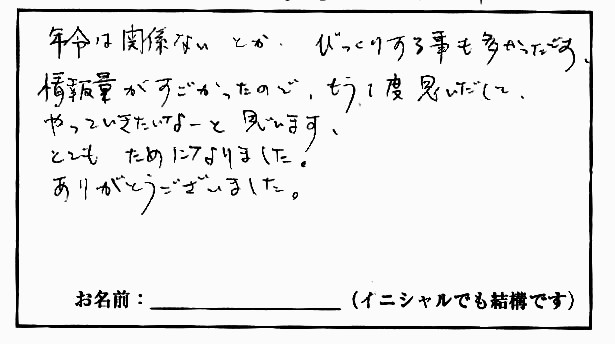 年令は関係ない とか、びっくりする事も多かったです。
情報量がすごかったので、もう1度思いだして、
やっていきたいなーと思います。
とても ためになりました!
ありがとうございました。
お名前：＿＿＿＿＿＿＿＿＿＿（イニシャルでも結構です）